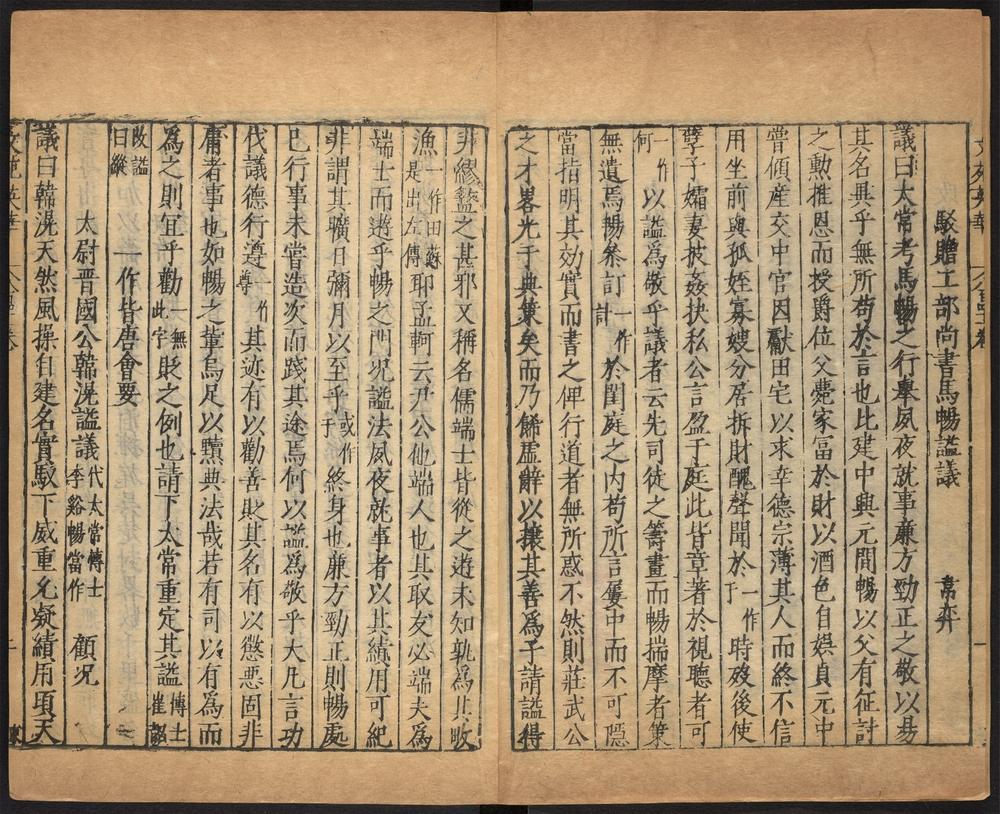 駁贈工部尚書馬暢謚議 韋弈
議曰太常考馬暢之行舉夙夜就事蔗方勁正之敬以易
其名無乎無所苟於言也比建中興元間暢以父有征討
之勳推恩而授爵位父薨家冨於財以酒色自娯貞元中
嘗傾産交中官因獻田宅以求幸德宗薄其人而終不信
用坐前與孤姪寡嫂分居拆財醜聲聞於一作于時歿後使
孽子孀妻披姦抉私公言盈于庭此皆章著於視聽者可
何一作以謚爲敬乎議者云先司徒之籌畫而暢揣摩者策
無遺焉暢叅訂一作計於閨庭之内苟所言屢中而不可隱
當指明其効實而書之俾行道者無所惑不然則莊武公
之才畧光于典策矣而乃餙虚辭以攘其善爲子請謚得
非繆盭之甚邪又稱名儒端士皆從之逰未知孰爲其畋
漁一作田蘇是出左傳耶孟軻云尹公他端人也其取友必端夫爲
端士而遊乎暢之門况謚法夙夜就事者以其績用可紀
非謂其曠日彌月以至乎或作于終身也廉方勁正則暢處
已行事未嘗造次而踐其途焉何以謚爲敬乎大凡言功
代議德行遵一作尊其迹有以勸善貶其名有以懲惡固非
庸者事也如暢之輩烏足以黷典法哉若有司以有爲而
爲之則宜乎勸一無此字貶之例也請下太常重定其謚博士崔韶
改謚曰縱 一作皆唐會要
太尉晋國公韓滉謚議代太常博士李谿暢當作 顧况
議曰韓滉天然風操自建名實馭下威重允凝績用頃天